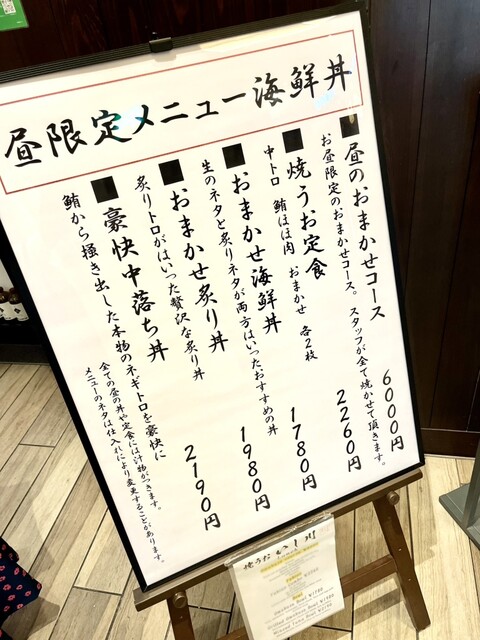 昼限定メニュー海鮮丼
■昼のおまかせコース 6000円
お昼限定のおまかせコース。スタッフが全て焼かせて頂きます。
■焼うお定食 2260円
中トロ 鮪ほほ肉 おまかせ 各2枚
■おまかせ海鮮丼 1780円
生のネタと炙りネタが両方はいったおすすめの丼
■おまかせ炙り丼 1980円
炙りトロがはいった贅沢な炙り丼
■豪快中落ち丼 2190円
鮪から掻き出した本物のネギトロを豪快に
全ての昼の丼や定食には汁物がつきます。
メニューのネタは仕入れにより変更することがあります。
焼うおいし川